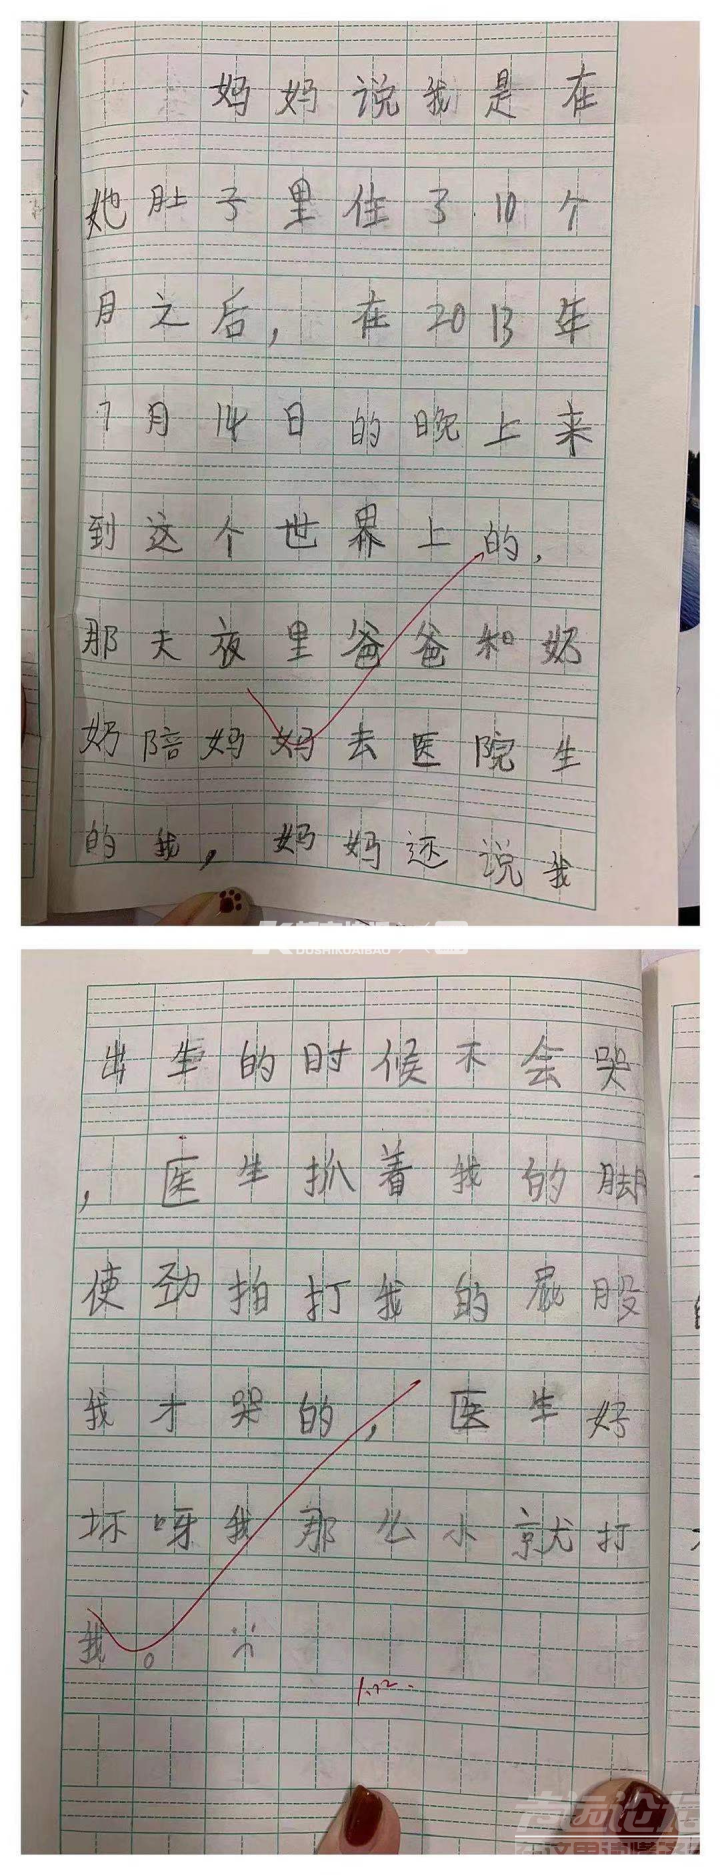 妈妈说我是在
她肚子里住了10个
月之后，在2013年
7月14日的晚上来
到这个世界上的，
那天夜里爸爸和奶
奶陪妈妈去医院生
的我，妈妈还说我
DUSHIKUAIBAO
出生的时候不会哭
，医生抓着我的脚
使劲拍打我的屁股
我才哭的，医生好
坏呀我那么小就打
我。